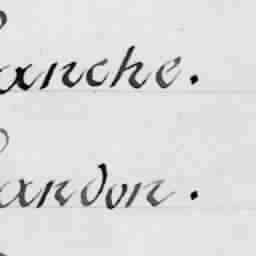 anche.
andon.